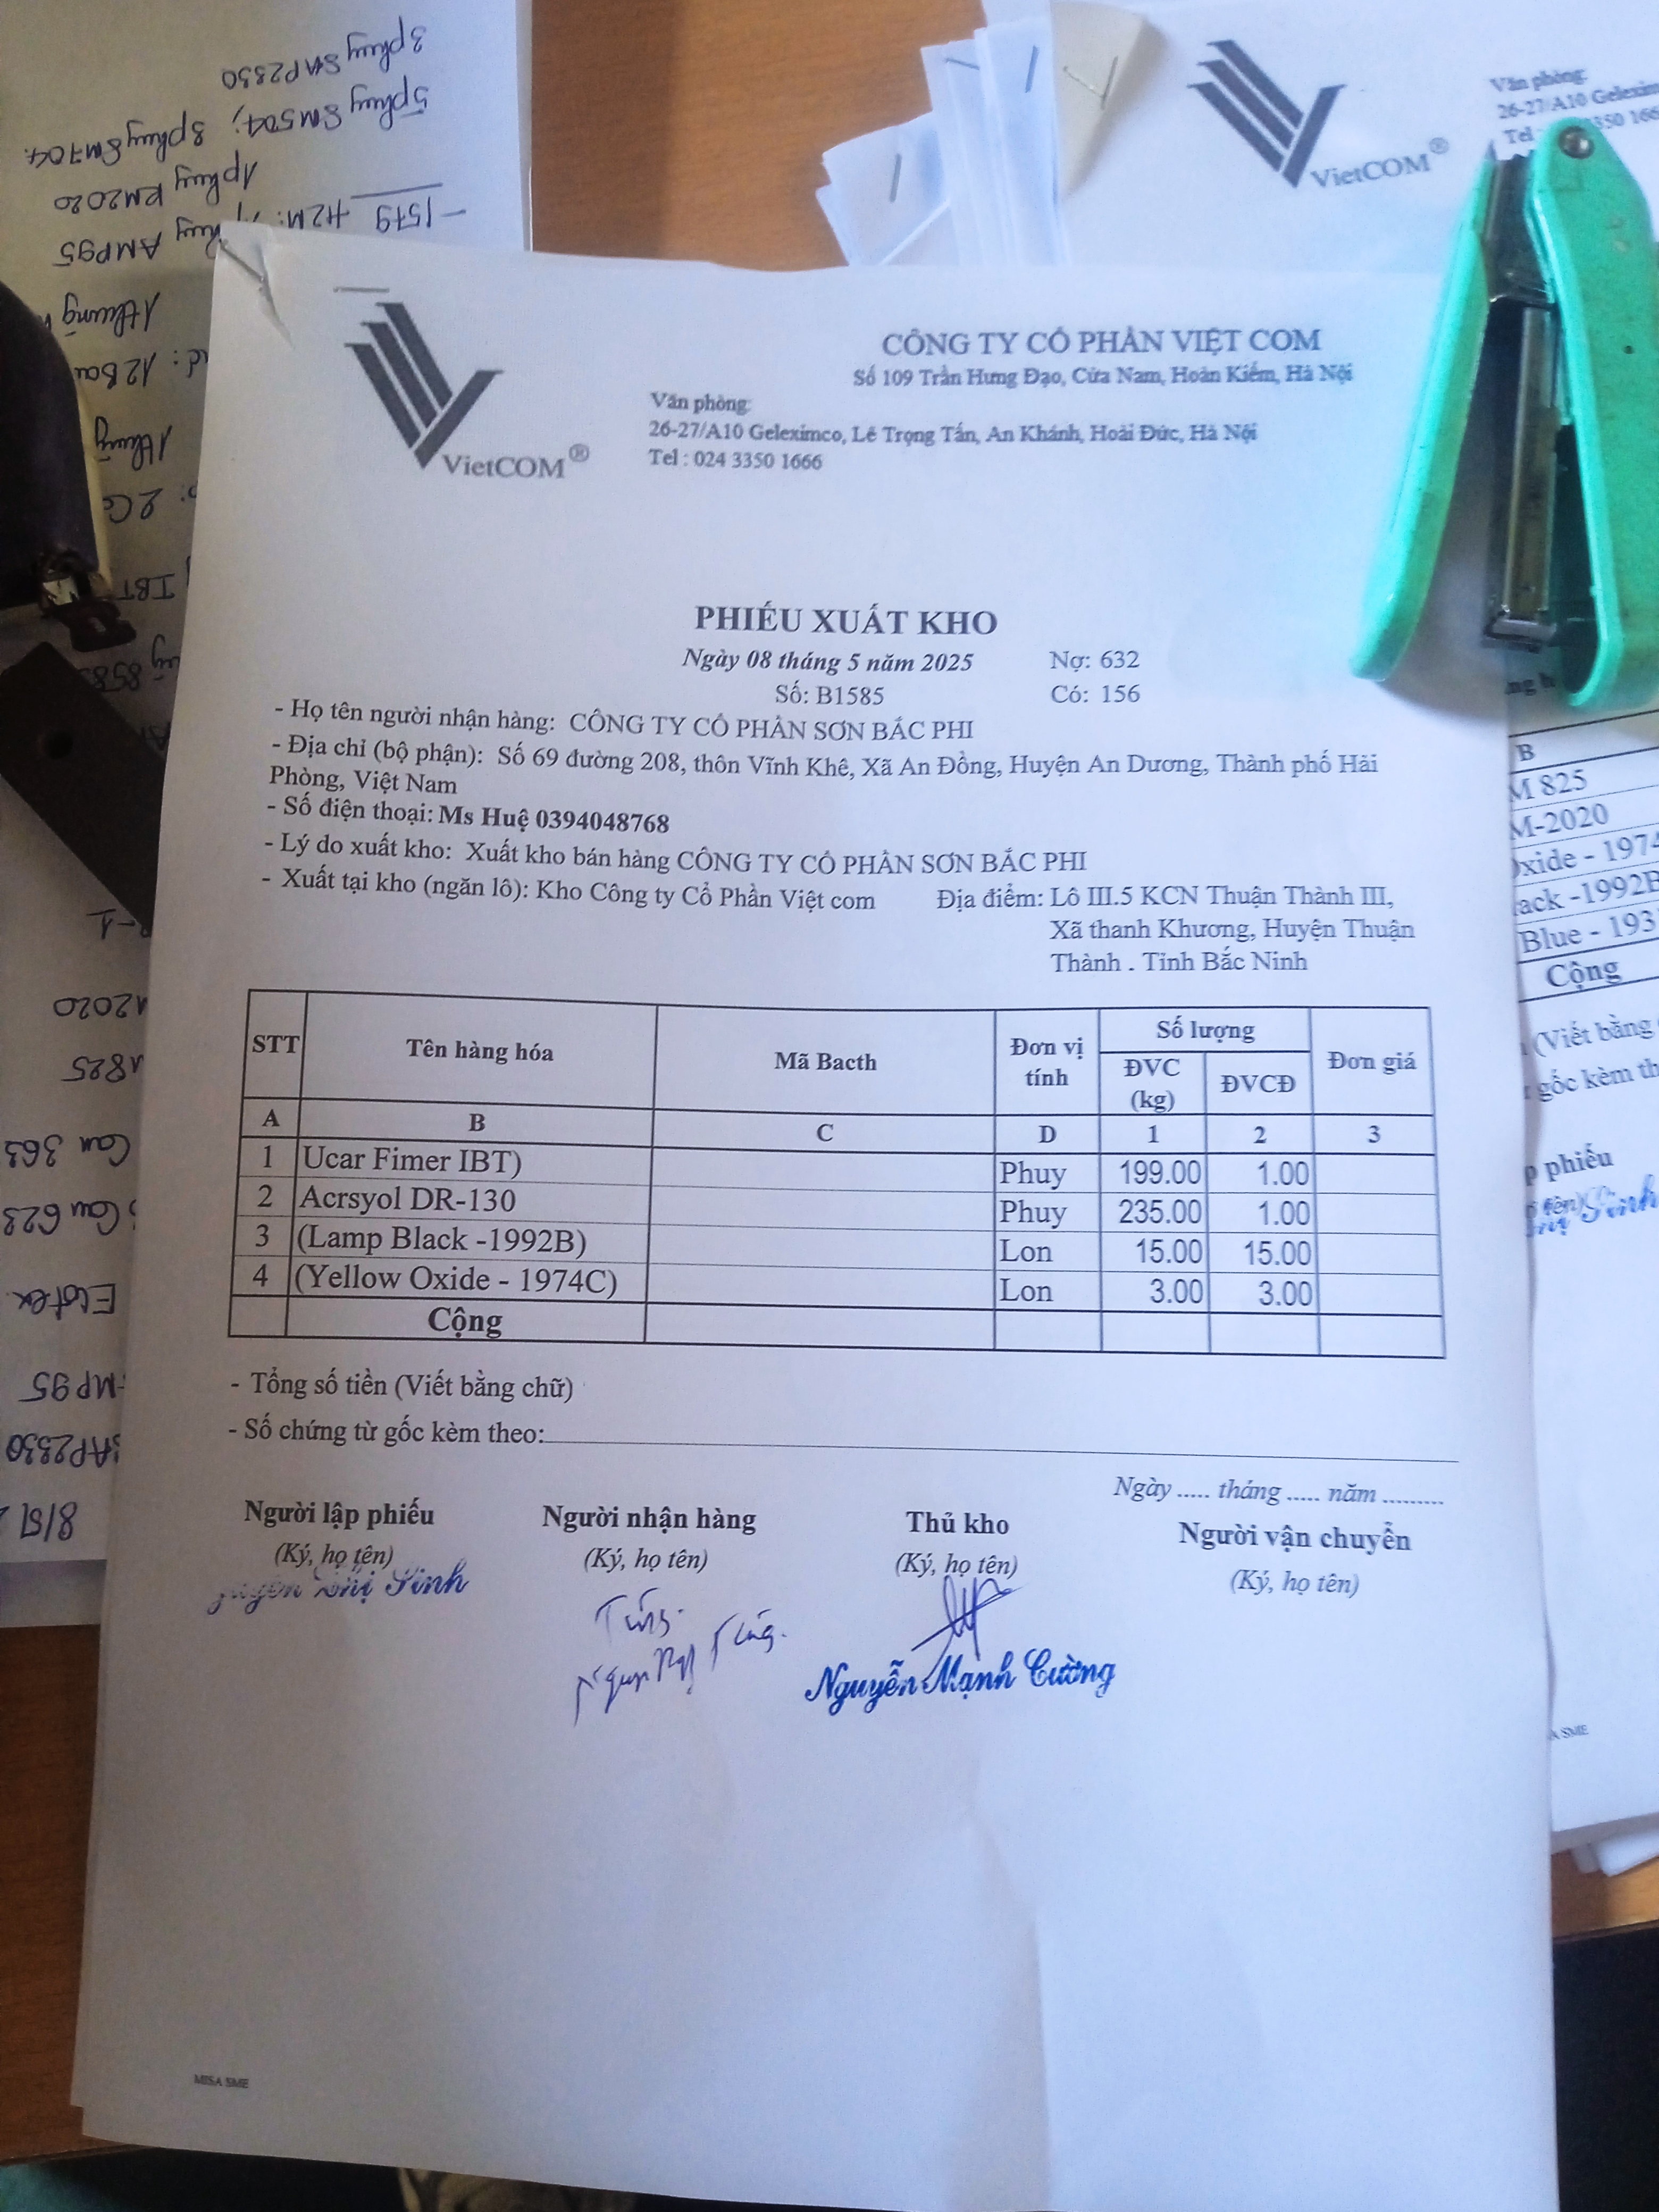 VietCOM®
CÔNG TY CỔ PHẦN VIỆT COM
Số 109 Trần Hưng Đạo, Cửa Nam, Hoàn Kiếm, Hà Nội
Văn phòng:
26-27/A10 Geleximco, Lê Trọng Tấn, An Khánh, Hoài Đức, Hà Nội
Tel : 024 3350 1666
PHIẾU XUẤT KHO
Ngày 08 tháng 5 năm 2025 Nợ: 632
Số: B1585 Có: 156
- Họ tên người nhận hàng: CÔNG TY CỔ PHẦN SƠN BẮC PHI
- Địa chỉ (bộ phận): Số 69 đường 208, thôn Vĩnh Khê, Xã An Đồng, Huyện An Dương, Thành phố Hải
Phòng, Việt Nam
- Số điện thoại: Ms Huệ 0394048768
- Lý do xuất kho: Xuất kho bán hàng CÔNG TY CỔ PHẦN SƠN BẮC PHI
- Xuất tại kho (ngăn lô): Kho Công ty Cổ Phần Việt com Địa điểm: Lô III.5 KCN Thuận Thành III,
Xã thanh Khương, Huyện Thuận
Thành . Tỉnh Bắc Ninh
STT Tên hàng hóa Mã Bacth Đơn vị tính Số lượng Đơn giá
ĐVC (kg) ĐVCĐ
A B C D 1 2 3
1 Ucar Fimer IBT) Phuy 199.00 1.00
2 Acrsyol DR-130 Phuy 235.00 1.00
3 (Lamp Black -1992B) Lon 15.00 15.00
4 (Yellow Oxide - 1974C) Lon 3.00 3.00
Cộng
- Tổng số tiền (Viết bằng chữ)
- Số chứng từ gốc kèm theo:
Ngày ..... tháng ..... năm .........
Người lập phiếu Người nhận hàng Thủ kho Người vận chuyển
(Ký, họ tên) (Ký, họ tên) (Ký, họ tên) (Ký, họ tên)
Nguyễn Mạnh Cường
MISA SME
3phuy SAP2330
5phuy SM504; 8phuy SM704
1phuy RM2020
-1579 H2M:
phuy AMP95
1thùng
12Bao
1thùng
IBT
2020
825
Can 363
Can 623
Elotex
MP95
SAP2330
8/5/
VietCOM®
Văn phòng:
26-27/A10 Gelexim
Tel
350 166
B
M 825
M-2020
Oxide - 1974
ack -1992B
Blue - 193
Cộng
(Viết bằng
gốc kèm th
p phiếu
tên)
A SME